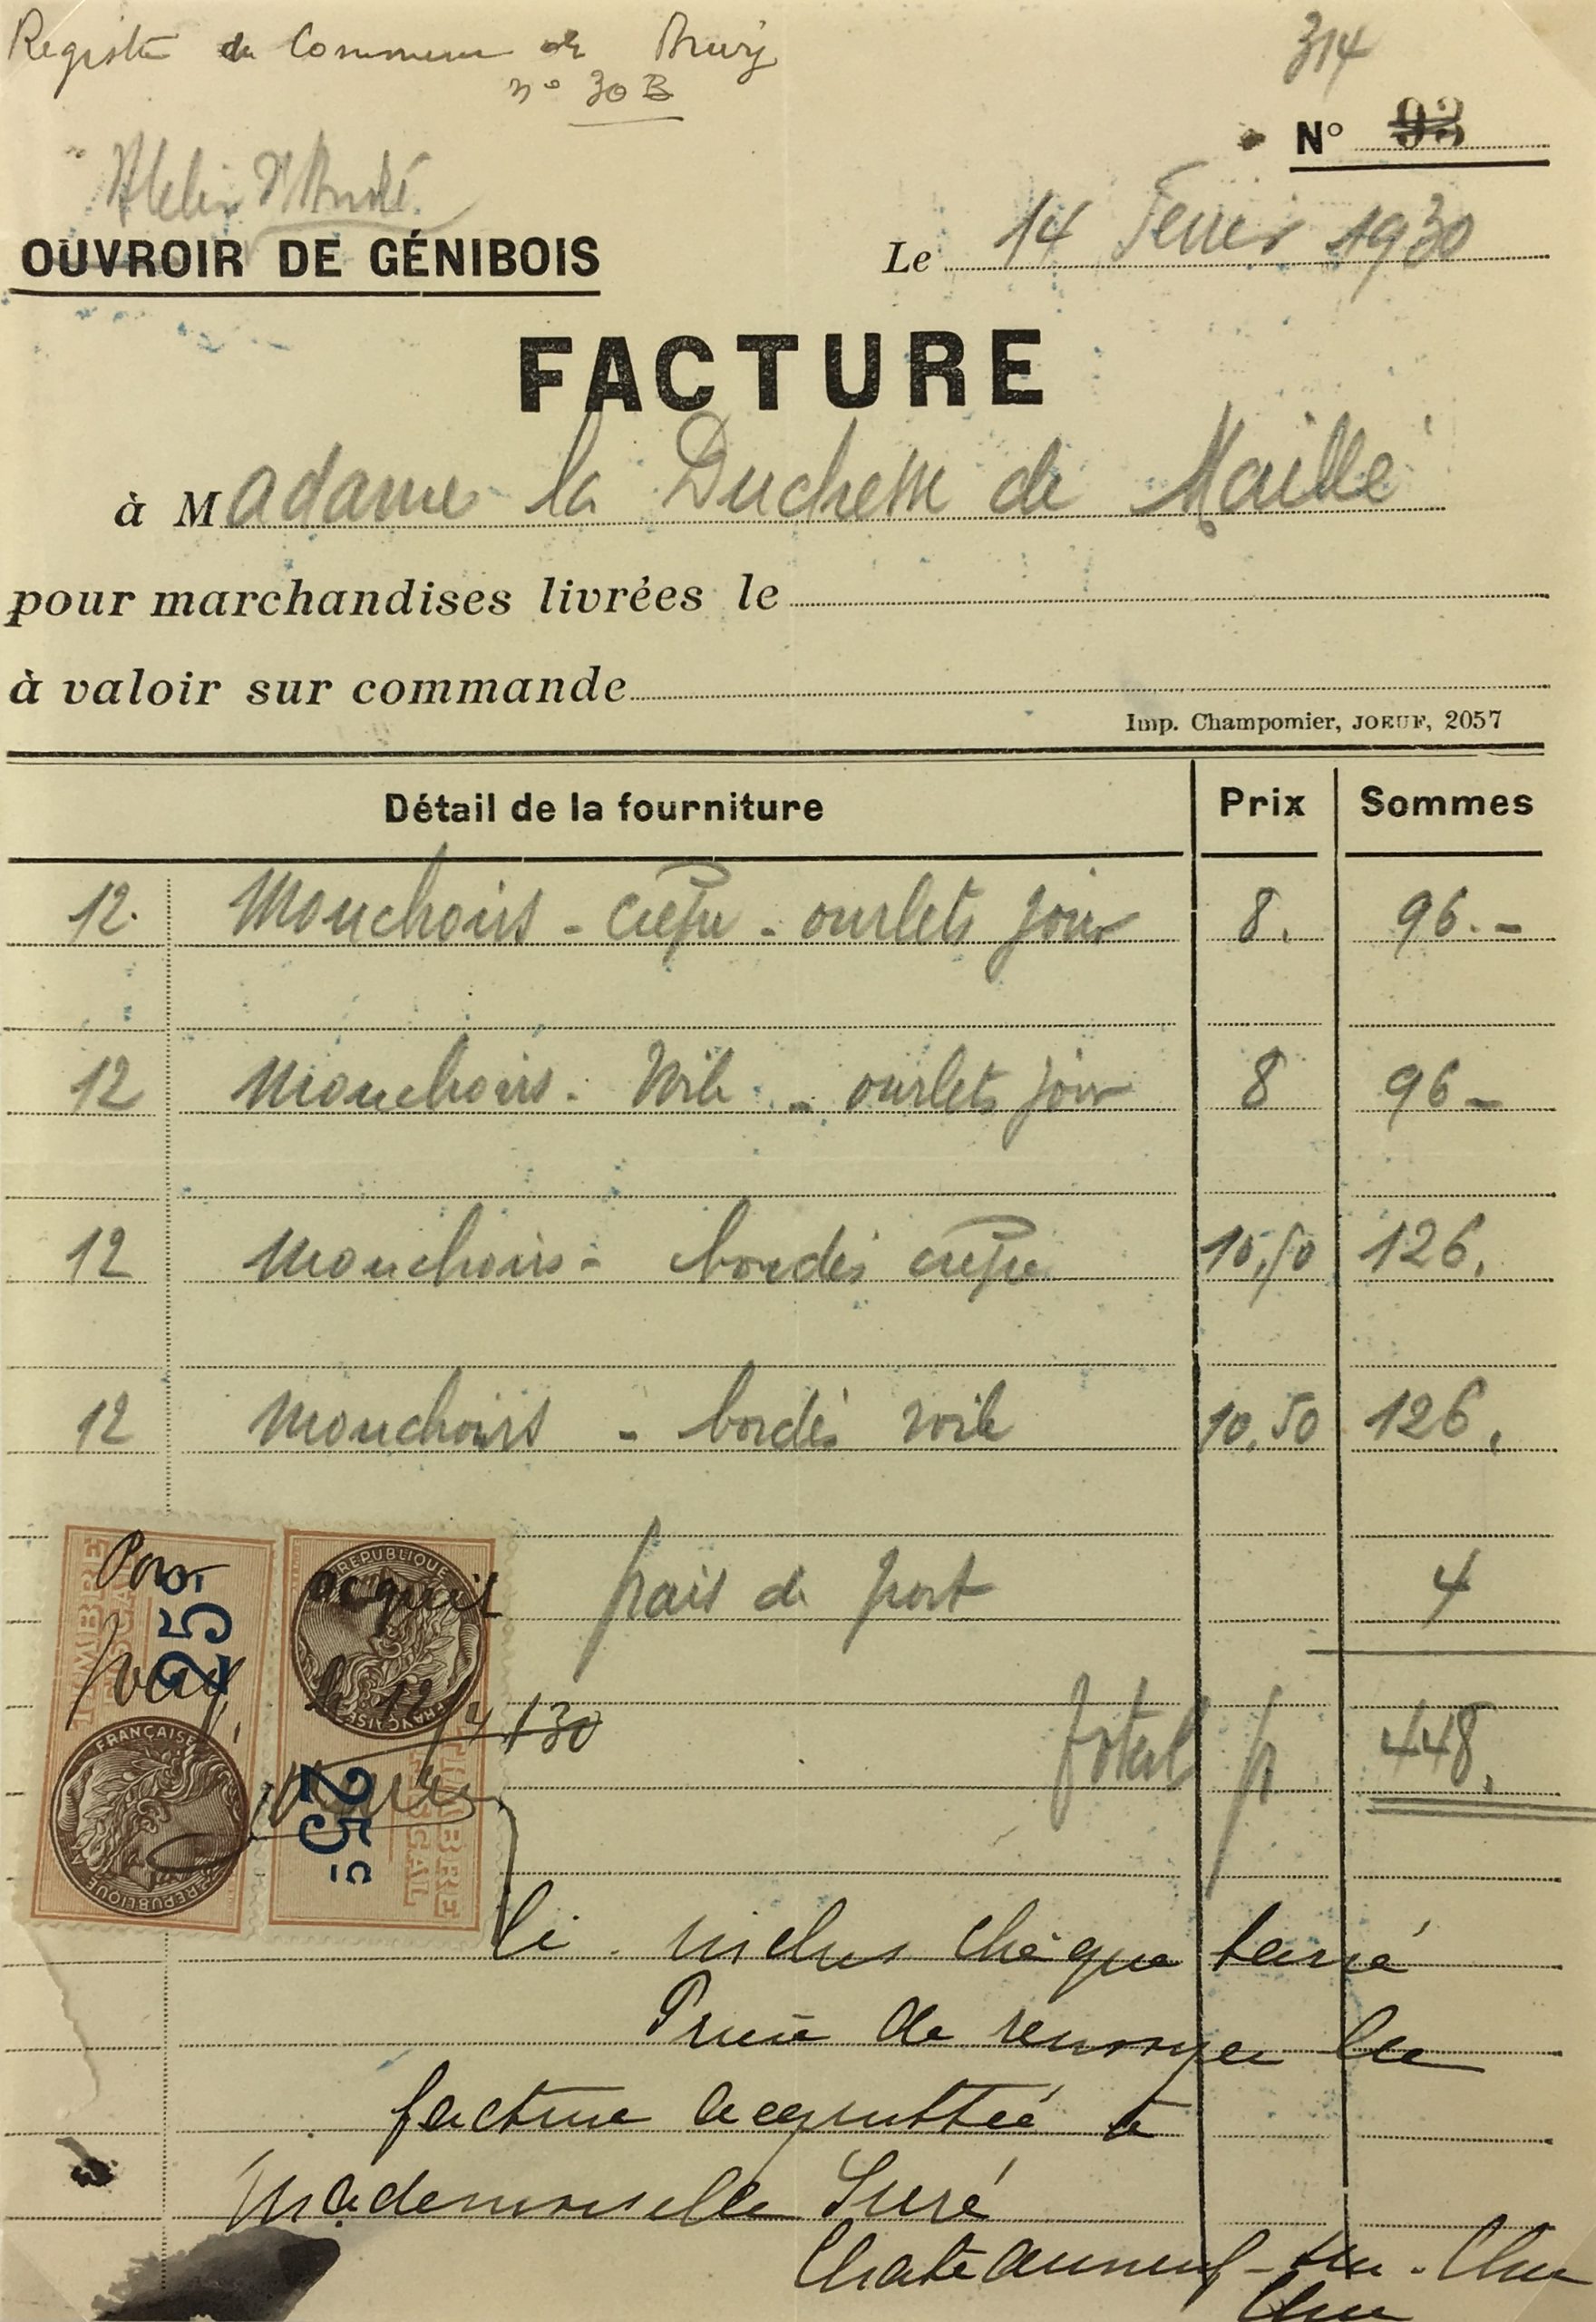 Registre du Commerce de Briey
n° 30 B
314
N° 93
OUVROIR DE GÉNIBOIS
Le 14 Fevrier 1930
FACTURE
à Madame la Duchesse de Maillé
pour marchandises livrées le
à valoir sur commande
Imp. Champomier, JOEUF, 2057
Détail de la fourniture Prix Sommes
12. Mouchoirs - crêpe - ourlets jour 8. 96.-
12 Mouchoirs - Voile - ourlets jour 8 96-
12 Mouchoirs - bordés crêpe 10,50 126.
12 Mouchoirs - bordés voile 10,50 126.
frais de port 4
Total fr 448.
Pour acquit
TIMBRE FISCAL
25c
REPUBLIQUE FRANÇAISE
TIMBRE FISCAL
25c
REPUBLIQUE FRANÇAISE
Ci-inclus chèque barré
Prière de renvoyer la
facture acquittée à
Mademoiselle Suré
Chateauneuf-sur-Cher
Cher